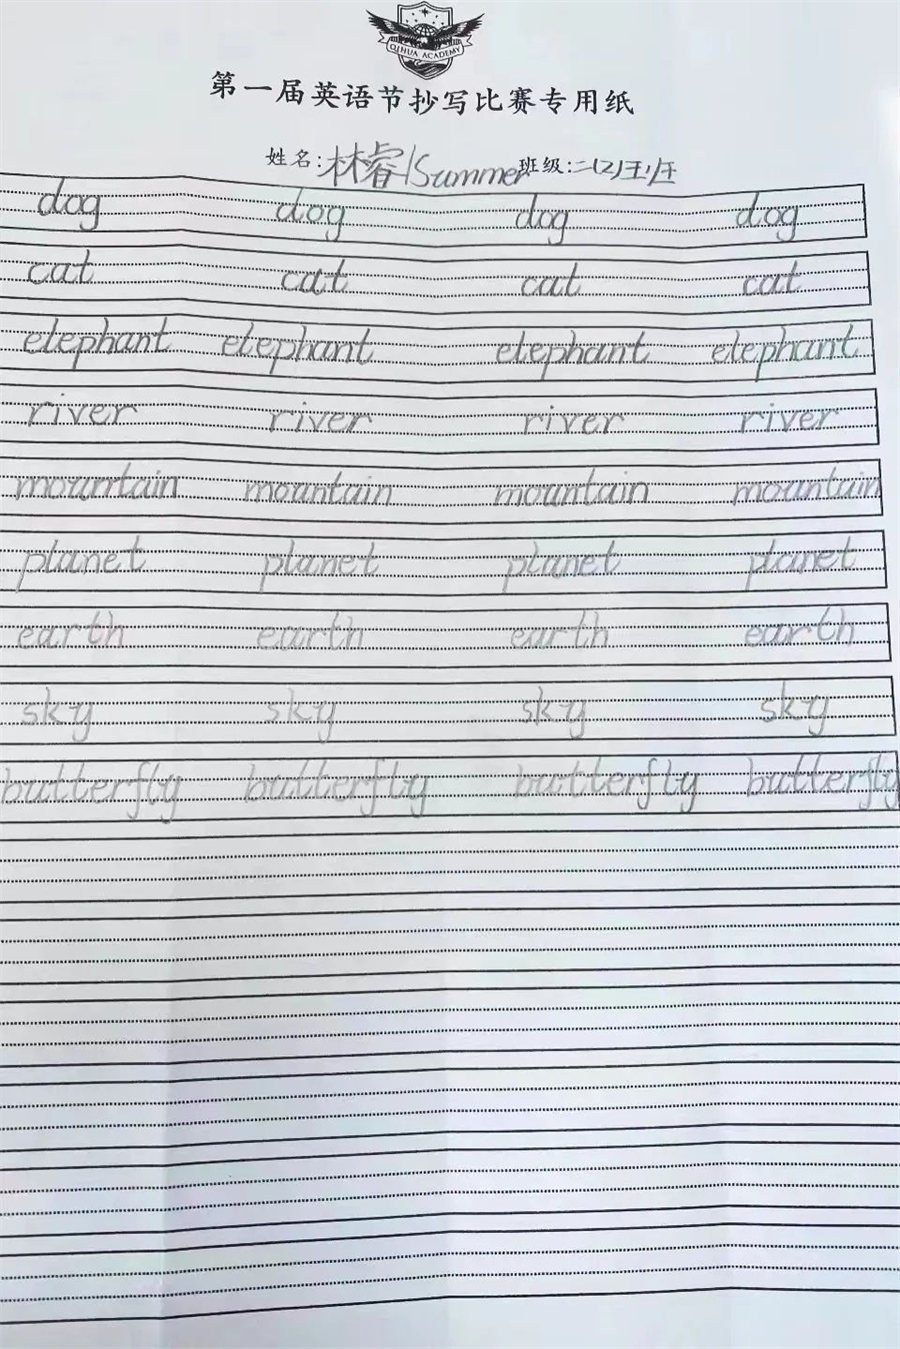 QIHUA ACADEMY
第一届英语节抄写比赛专用纸
姓名:林睿/Summer班级:二(2)班
dog dog dog dog
cat cat cat cat
elephant elephant elephant elephant
river river river river
mountain mountain mountain mountain
planet planet planet planet
earth earth earth earth
sky sky sky sky
butterfly butterfly butterfly butterfly